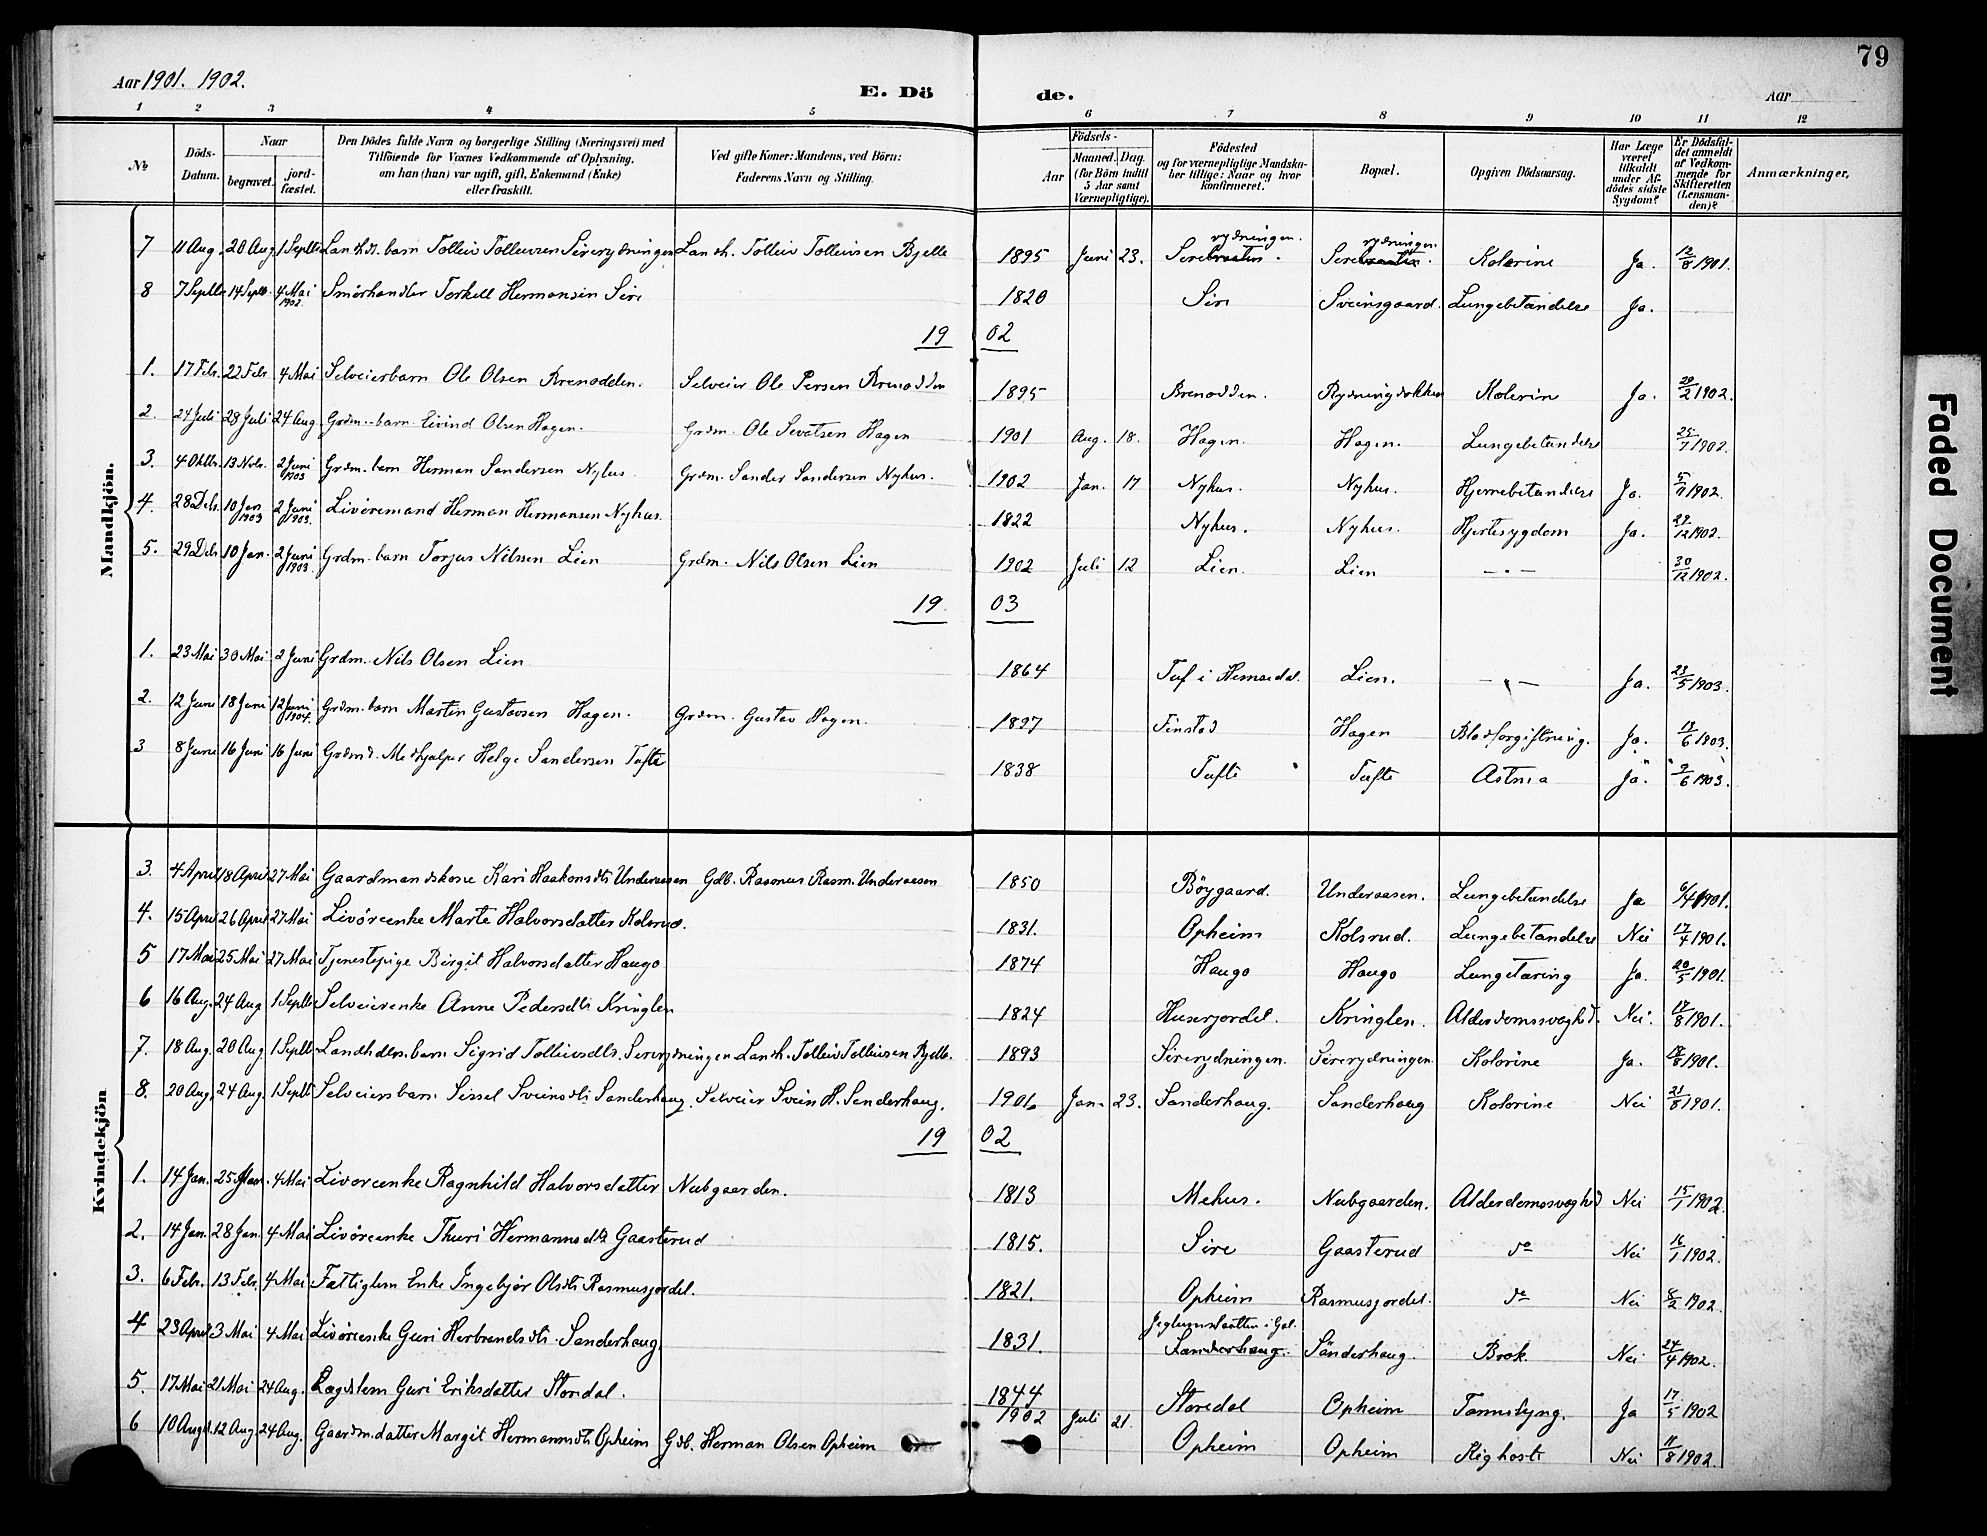 79
Aar 1901. 1902.
E. Dö de.
Aar
1 2 3 4 5 6 7 8 9 10 11 12
No
Döds-Datum.
Naar
begravet.
jord-fæstet.
Den Dödes fulde Navn og borgerlige Stilling (Næringsvei) med Tilföiende for Voxnes Vedkommende af Oplysning, om han (hun) var ugift, gift, Enkemand (Enke) eller fraskilt.
Ved gifte Koner: Mandens, ved Börn: Faderens Navn og Stilling.
Födsels-
Aar
Maaned. Dag.
(for Börn indtil 5 Aar samt Værnepligtige).
Födested og for værnepligtige Mandskaber tillige: Naar og hvor konfirmeret.
Bopæl.
Opgiven Dödsaarsag.
Har Læge været tilkaldt under Afdödes sidste Sygdom?
Er Dödsfaldet anmeldt af Vedkommende for Skifteretten (Lensmanden)?
Anmærkninger.
Mandkjön.
7 11 Aug. 20 Aug 1 Septb Landhdl. barn Tolleiv Tolleivsen Sirerydningen Landh. Tolleiv Tolleivsen Bjelle 1895 Juni 23. Sirerydningen. Sirerydningen. Kolerine Ja. 12/8 1901.
8 7 Septb 14 Septb. 4 Mai 1902. Smörhandler Torkell Hermansen Sire 1820 Sire Sveinsgaard. Lungebetændelse Ja.
19 02
1. 17 Febr. 22 Febr 4 Mai Selveierbarn Ole Olsen Brenodden. Selveier Ole Persen Brenodden 1895 Brenodden. Rydningdokken Kolerine Ja. 20/2 1902.
2. 24 Juli 28 Juli 24 Aug Grdm.-barn Eivind Olsen Hagen. Grdm. Ole Sevatsen Hagen 1901 Aug. 18. Hagen. Hagen. Lungebetændelse 25/7 1902.
3. 4 Oktb. 13 Novr. 2 Juni 1903 Grdm. barn Herman Sandersen Nyhus. Grdm. Sander Sandersen Nyhus. 1902 Jan. 17 Nyhus. Nyhus. Hjernebetændelse Ja. 1902.
4. 28 Deb. 10 Jan 1903 2 Juni 1903. Livöremand Herman Hermansen Nyhus. 1822 Nyhus. Nyhus. Hjertesygdom Ja. 29/12 1902.
5. 29 Deb 10 Jan. 2 Juni 1903. Grdm. barn Torjus Nilssen Lien Grdm. Nils Olsen Lien 1902 Juli 12 Lien. Lien — . — 30/12 1902.
19. 03
1. 23 Mai 30 Mai 2 Juni Grdm. Nils Olsen Lien 1864 Tuf i Hemsedal. Lien. — . — Ja. 23/5 1903.
2. 12 Juni 18 Juni 12 Juni 1904. Grdm. barn Martin Gustavsen Hagen. Grdm. Gustav Hagen. 1897 Finstad Hagen Blodforgiftning. Ja. 13/6 1903.
3 8 Juni 16 Juni 16 Juni Grdmd. Medhjælper Helge Sandersen Tufte 1838 Tufte Tufte Astma Ja. 9/6 1903.
Kvindekjön
3. 4 April 18 April 27 Mai Gaardmandskone Kari Haakonsdtr Underaasen Gdb. Rasmus Rasm. Underaasen 1850 Böygaard. Underaasen. Lungebetændelse Ja 6/4 1901.
4. 15 April 26 April 27 Mai Livöreenke Marte Halvorsdatter Kolsrud. 1831. Opheim Kolsrud. Lungebetændelse Nei 17/4 1901.
5 17 Mai 25 Mai 27 Mai Tjenestepige Birgit Halvorsdatter Haugo 1874 Haugo Haugo Lungetæring Ja. 20/5 1901.
6 16 Aug. 24 Aug 1 Septb Selveierenke Anne Pedersdtr Kringlen 1824 Huserjordet. Kringlen. Alderdomssvaghed. Nei. 17/8 1901.
7. 18 Aug. 20 Aug 1 Septb Landhdlers. barn Sigrid Tolleivsdtr. Sirerydningen Landh. Tolleiv Tolleivsen Bjelle. 1893 Sirerydningen. Sirerydningen. Kolerine Ja. 1901.
8. 20 Aug. 24 Aug. 1 Septb Selveiersbarn Sissel Sveinsdtr Sanderhaug. Selveier Svein H. Sanderhaug. 1901. Jan. 23. Sanderhaug. Sanderhaug Kolerine Nei 21/8 1901.
19 02
1. 14 Jan. 25 Jan. 4 Mai Livöreenke Ragnhild Halvorsdatter Nubgaarden. 1813 Mehus. Nubgaarden. Alderdomssvaghed Nei 15/1 1902.
2. 14 Jan. 28 Jan. 4 Mai Livöreenke Thuri Hermannsdtr Gaasterud 1815. Sire Gaasterud do Nei 16/1 1902.
3. 6 Febr. 13 Febr. 4 Mai Fattiglem Enke Ingebjør Olsdtr Rasmusjordet. 1821. Opheim Rasmusjordet. do Nei 8/2 1902.
4 23 April 3 Mai 4 Mai Livöreenke Guri Herbrandsdtr. Sanderhaug. 1831. i Gol. Sanderhaug. Sanderhaug. Brok. Nei 24/4 1902.
5. 17 Mai 21 Mai 24 Aug. Lægdslem Guri Eriksdatter Storedal. 1844 Storedal Opheim Ja 17/5 1902
6 10 Aug. 12 Aug. 24 Aug. Gaardm.datter Margit Hermannsdtr Opheim Gdb. Herman Olsen Opheim 1902 Juli 21. Opheim Opheim Kighoste Nei 11/8 1902.
Faded Document